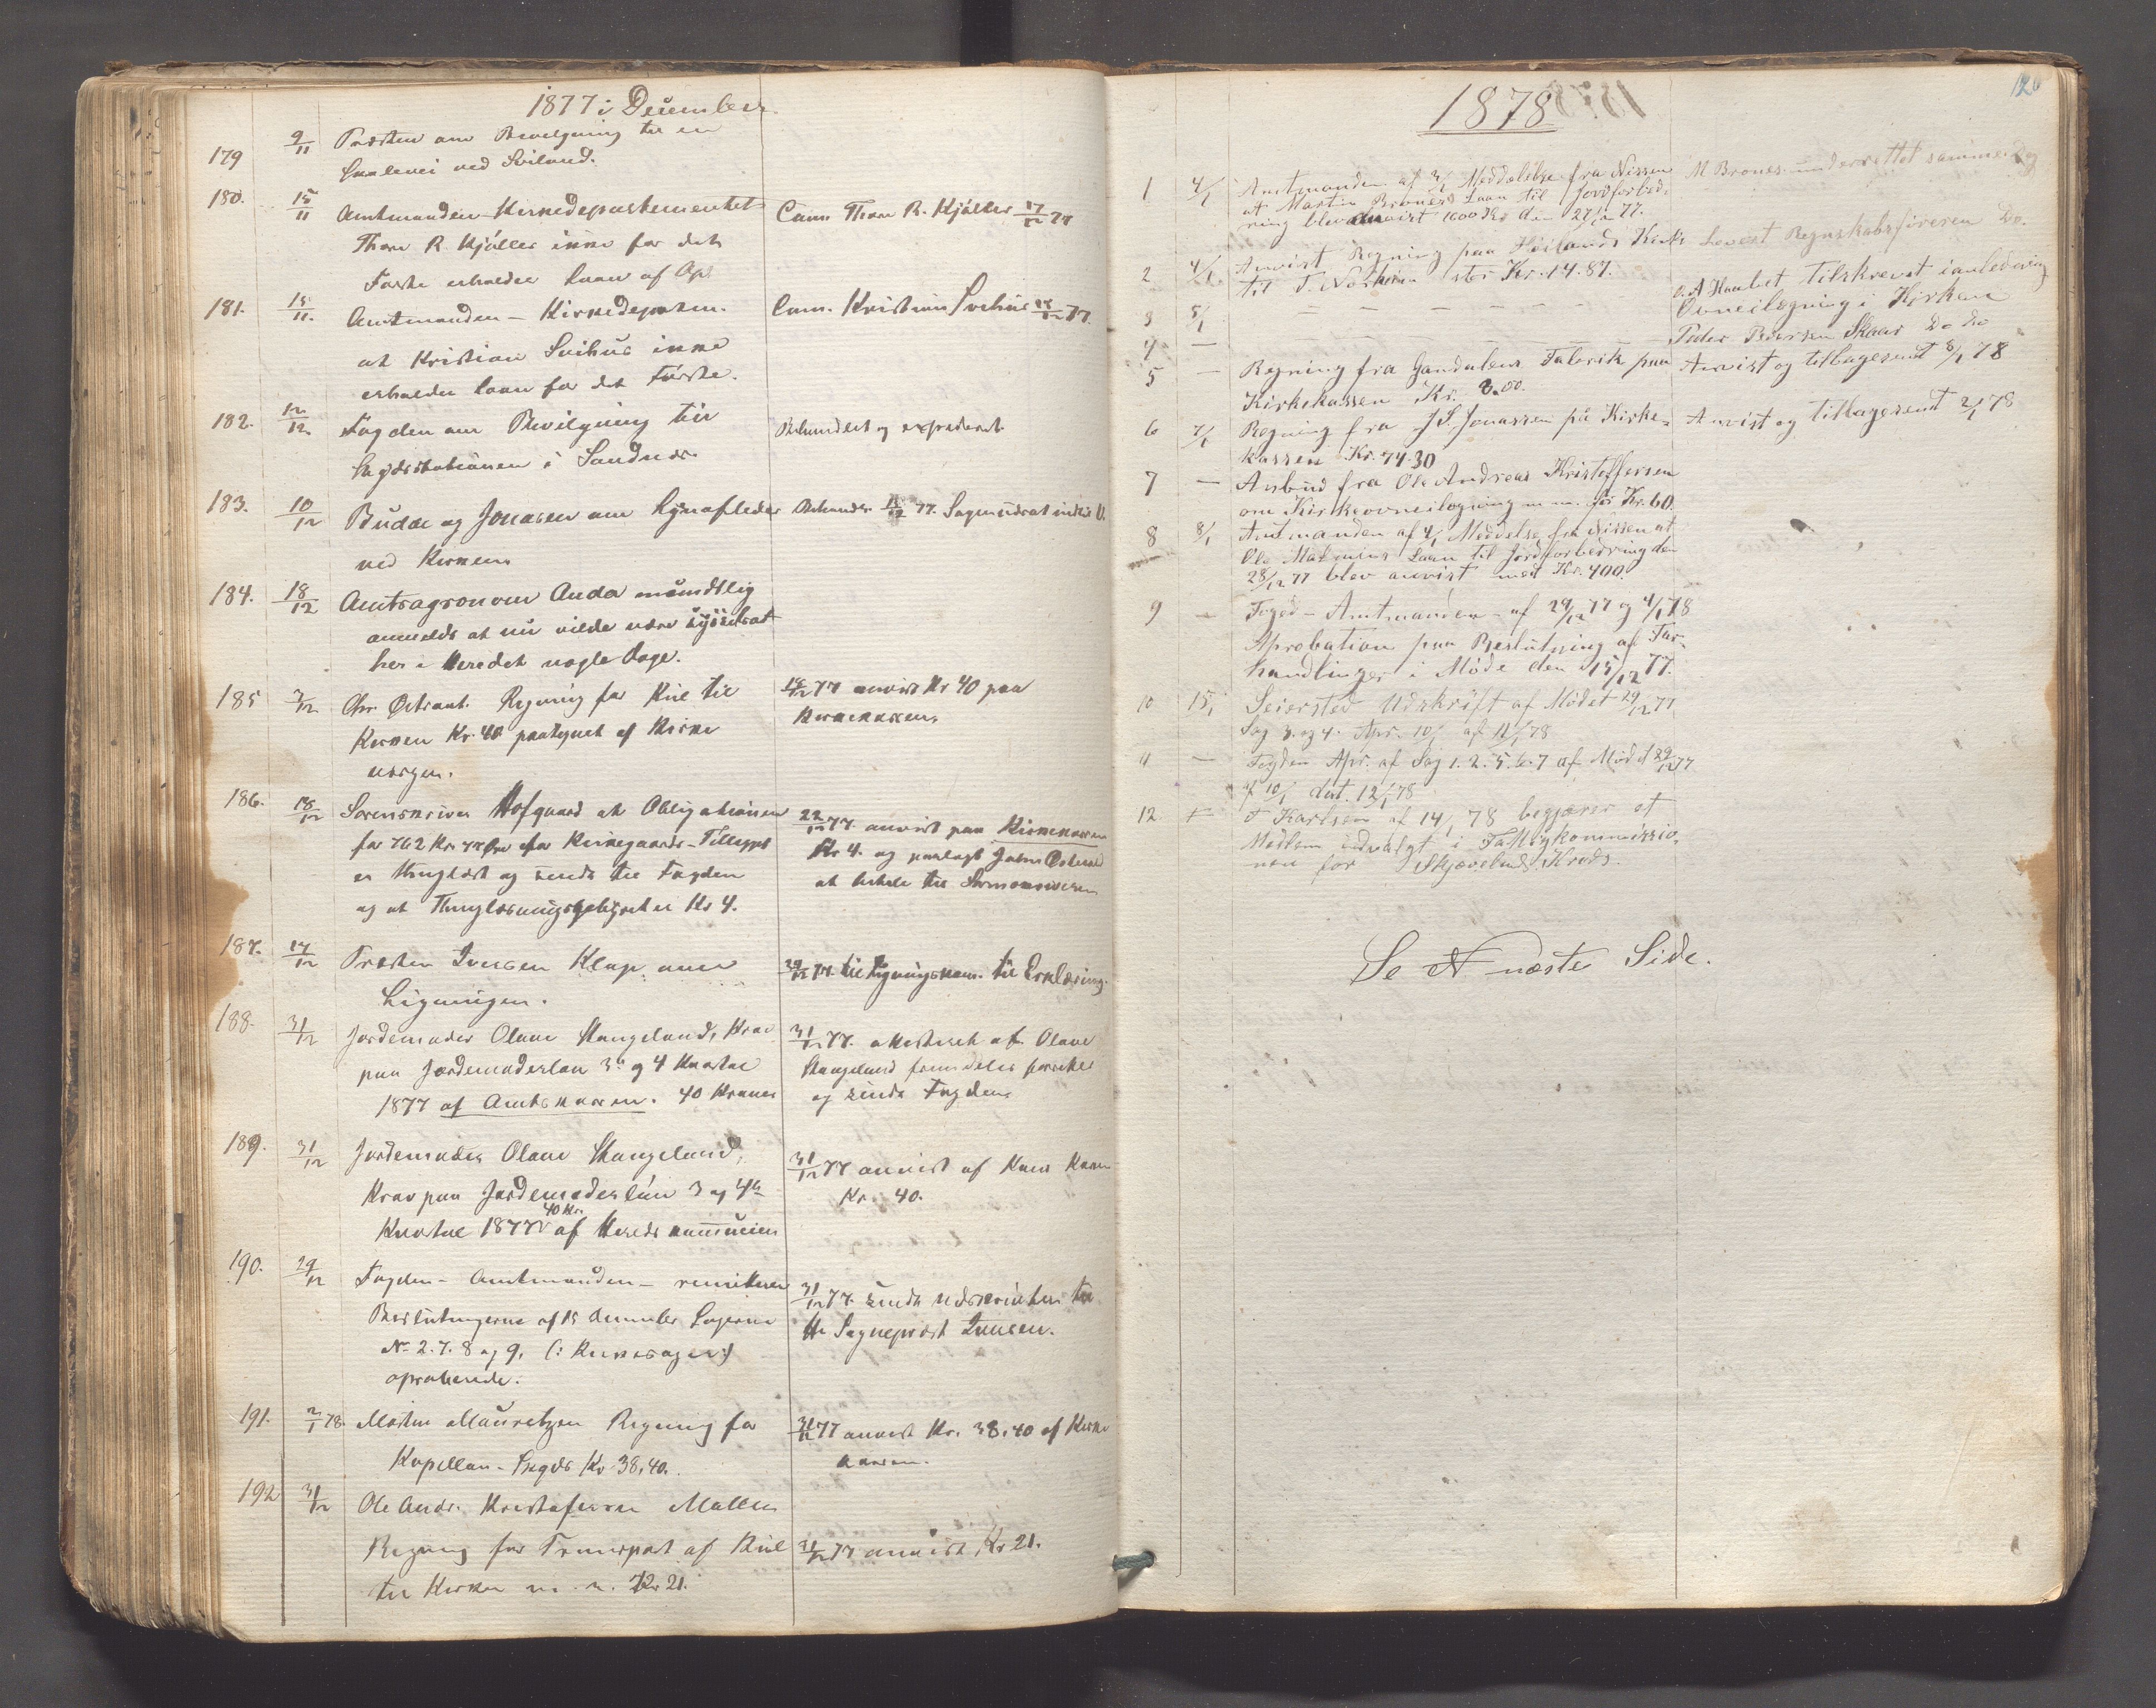 1877 i December
179 9/11 Præsten om Bevilgning til en
ved Sviland.
180. 15/11 Amtmanden - Kirkedepartementet
Thore R. Kjøller ikke for det
Første erholder Laan af Op.
Com. Thore R. Kjøller 17/12 77
181. 15/11. Amtmanden - Kirkedeparten.
at Kristian Svihus ikke
erholder Laan for det Første.
Com. Kristian Svihus 77.
182. 12/12 Fogden om Bevilgning til
i Sandnes.
Behandlet og expederet
183. 10/12 Budde og Jonasen om Lynafleder
ved Kirken
77.
184. 18/12 Amtsagronom Anda mundtlig
anmeldt at nu vilde være
her i Heredet nogle Dage.
185 3/12 Chr. Østraat. Regning for Kul til
Kirken Kr. 40 paategnet af Kirke
værgen.
18/12 77 anvist Kr 40 paa
Kirkekassen.
186. 18/12 Sorenskriver Hofgaard at Obligationen
for 762 Kr. for Kirkegaards-Tillægget
er thinglæst og sendt til Fogden
og at Thinglæsningsgebyret er Kr 4.
22/12 77. anvist paa Kirkekassen
Kr 4. og paalagt
at betale til Sorenskriveren
187. 17/12 Præsten Iversen Klep om
Ligningen.
29/12 77. til Ligningskom. til Erklæring.
188. 31/12 Jordemoder Olane Stangeland, Krav
paa Jordemoderløn 3 og 4 Kvartal
1877 af Amtskassen. 40 Kroner
31/12 77. attesteret at Olane
Stangeland fremdeles
og sendt Fogden
189. 31/12 Jordemoder Olane Stangeland,
Krav paa Jordemoderløn 3 og 4de
40 Kr.
Kvartal 1877 af Hereds kommunen
31/12 77 anvist af Kom Kassen
Kr. 40.
190. 29/12 Fogden - Amtmanden - remitterer
Beslutningerne af 15 December Sagerne
No 2. 7. 8 og 9. (: Kirkesager :)
aproberede.
31/12 77. sendt Udskriften til
Hr Sogneprest Iversen.
191. 2/1 78. Martin Mauretzen Regning for
Kapellan - Skyds Kr 38,40.
31/12 77 anvist Kr. 38,40 af Kirke
kassen.
192 31/12 Ole Andr. Kristofersen Mallen
Regning for Transport af Kul
til Kirken m. m. Kr. 21.
31/12 77 anvist Kr 21.
120
1878
1 4/1 Amtmanden af 3/1 Meddelelse fra Nissen
at Martin Brones Laan til Jordforbed-
ring blev anvist 1000 Kr den 27/12 77.
M Brones underrettet samme Dag
2 4/1 Anvist Regning paa Høilands Kirke
til T. Norheim stor Kr. 14.87.
Levert Regnskabsføreren Do.
3 5/1 — — — —
O. A Haabet Tilskrevet i anledning
Ovneilægning i Kirken
4 —
Peder Pedersen Skaar Do Do
5 — Regning fra Gandalens Fabrik paa
Kirkekassen Kr. 8.00.
Anvist og tilbagesendt 8/1 78
6 7/1 Regning fra J. S. Jonassen på Kirke-
kassen Kr. 74.30
Anvist og tilbagesendt 2/1 78
7 — Anbud fra Ole Andreas Kristoffersen
om Kirkeovneilægning m. m. for Kr. 60.
8 8/1 Amtmanden af 4/1 Meddelse fra Nissen at
Ole Malmins Laan til Jordforbedring den
28/12 77 blev anvist med Kr. 400.
9 — Foged - Amtmanden - af 29/12 77 og 4/1 78
Aprobation paa Beslutning af For-
handlinger i Møde den 15/12 77.
10 15/1 Seiersted Udskrift af Mødet 29/12 77
Sag 3. og 4. Apr. 10/1 af 11/1 78
11 — Fogden Apr. af Sag 1. 2. 5. 6. 7 af Mødet 29/12 77
af 10/1 dat. 12/1 78
12 — T Karlsen af 14/1 78 begjærer et
Medlem udvalgt i Fattigkommissio-
nen for Skjævelands Kreds.
Se N næste Side.